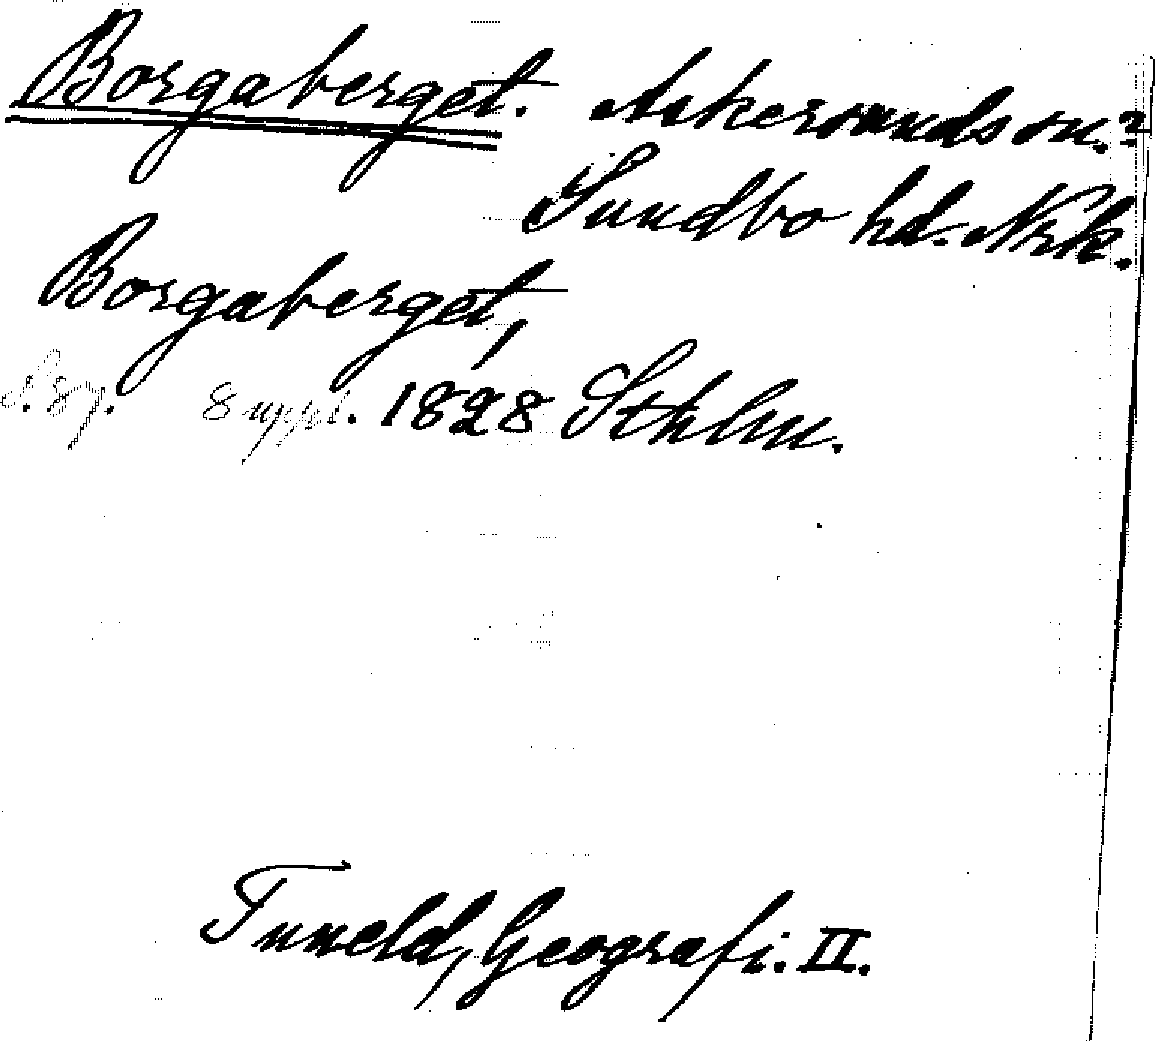 Borgaberget. Askersunds sn.?
Sundbo hd. Nrk.
Borgaberget,
S. 87. 8 uppl. 1828 Sthlm.
Tuneld, Geografi. II.